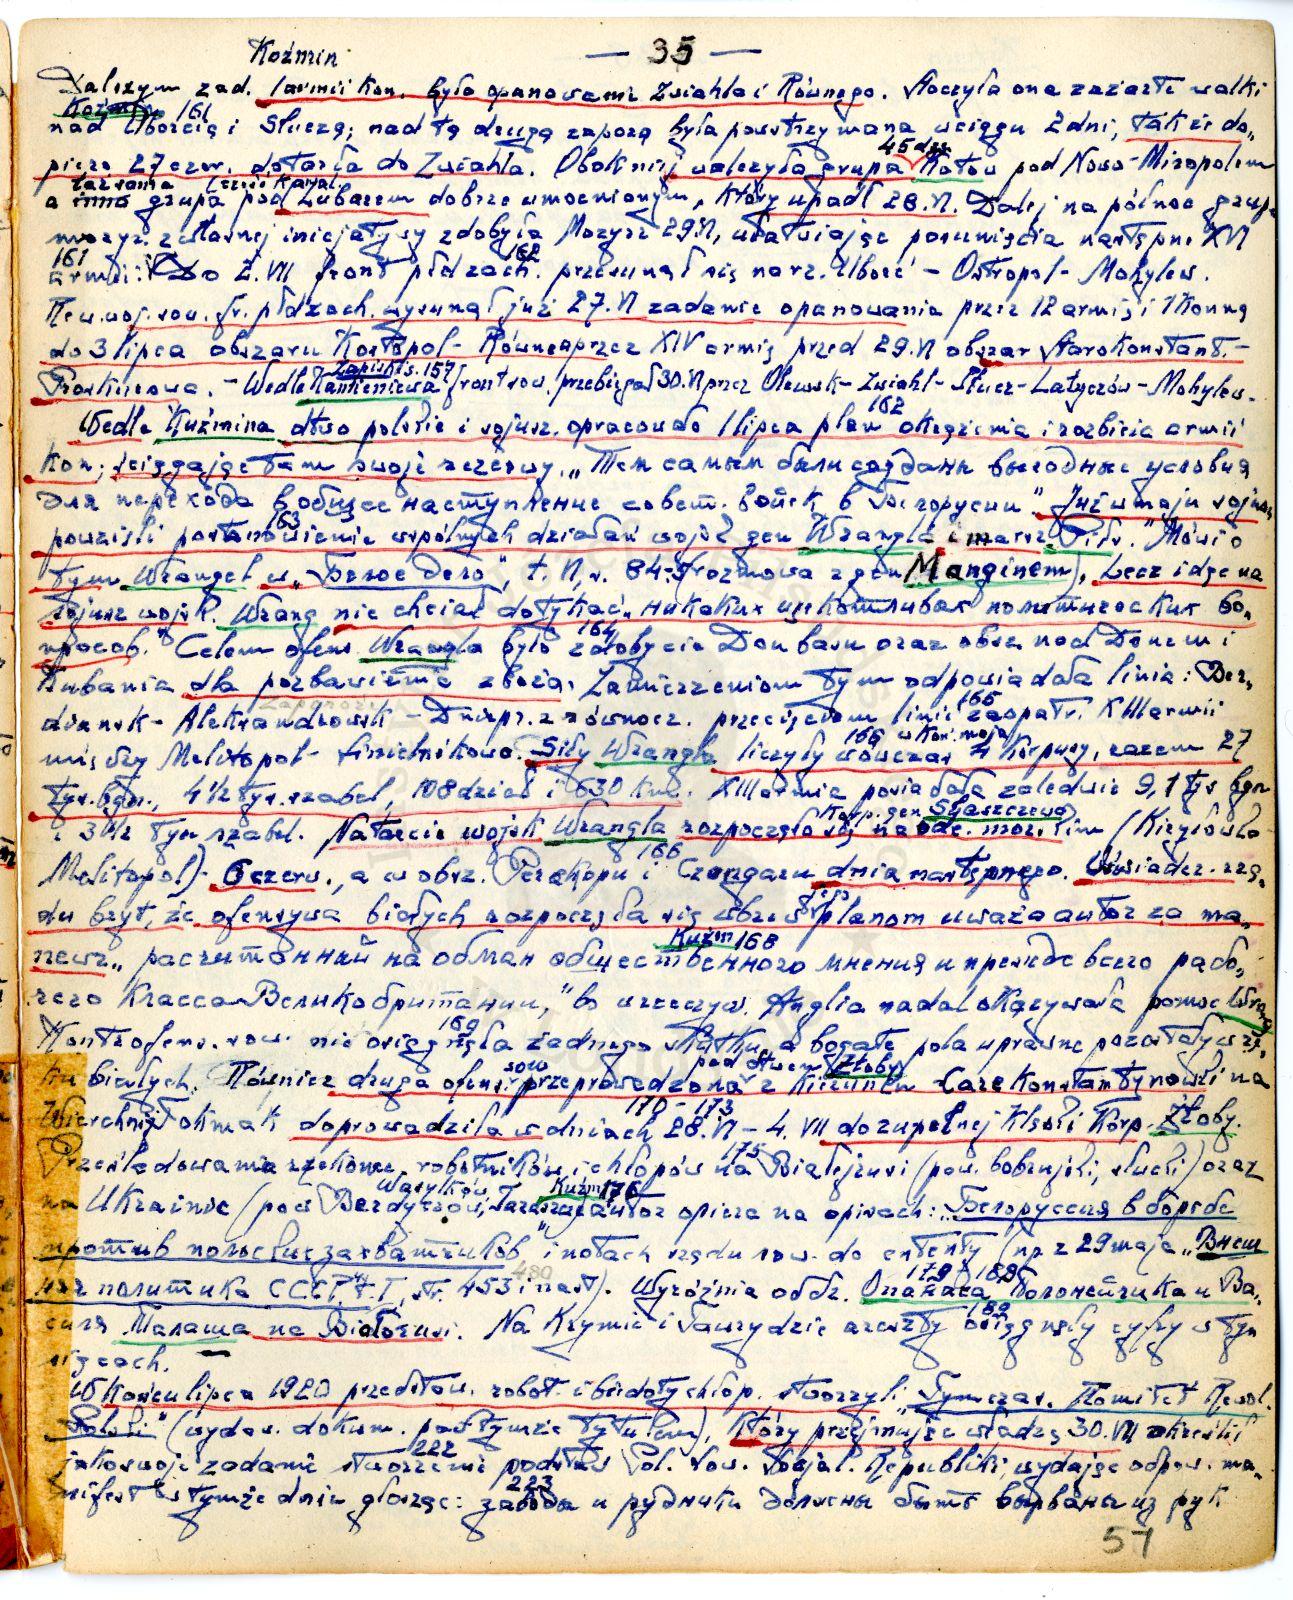 Koźmin — 35 —
Dalszym zad. 1 armii kon. było opanowanie Zwiahla i Równego. Stoczyła ona zażarte walki
Koźmin 161
nad Uborcią i Słuczą; nad tą drugą zaporą była powstrzymana w ciągu 2 dni, tak że do-
piero 27 czer. dotarła do Zwiahla. Obok niej walczyła grupa 45 dsz Kotow pod Nowo-Miropolem
a inna grupa pod Lubarem dobrze umocnionym, który upadł 28.VI. Dalej na północ grupa
mozyr. z własnej inicjatywy zdobyła Mozyrz 29.VI, ułatwiając posunięcia następne XVI
161 armii. Do 2.VII front płdzach. 162 przesunął się na rz. Uboré – Ostropol – Mohylew.
Rew. woj. sow. fr. płdzach. wysunął już 27.VI zadanie opanowania przez 12 armię i 1 Konną
do 3 lipca obszaru Kostopol – Równe a przez XIV armię przed 29.VI obszar Starokonstant. –
Proskurowa. – Wedle Kamieniewa Zapiski s. 157 front sow. przebiegał 30.VI przez Olewsk – Zwiahl – Słucz – Latyczów – Mohylew.
162
Wedle Kuźmina dtwo polskie i sojusz. opracow. do 1 lipca plan okrążenia i rozbicia armii
kon., ściągając tam swoje rezerwy. „Тем самым были созданы выгодные условия
для перехода в общее наступление совет. войск в Белоруссии". Już w maju sojusz.
163
powzięli postanowienie wspólnych działań wojsk gen Wrangla i marsz. Piłs." Mówi o
tym Wrangel w „Белое дело", t. VI, s. 84 (rozmowa z gen Manginem), Lecz idąc na
sojusz wojsk. Wrang nie chciał dotykać „никаких щекотливых политических во-
164
просов." Celem ofens. Wrangla było zdobycie Donbasu oraz obsz. nad Donem i
Kubania dla pozbawienia zboża. Zamierzeniom tym odpowiadała linia: Ber-
Zaporoże 165
diansk – Aleksandrowsk – Dniepr z równocz. przecięciem linii zaopatr. XIII armii
166 w kon. maja
między Melitopol – . Siły Wrangla liczyły wówczas 4 korpusy, razem 27
tys. bgn., 4 1/2 tys. szabel, 108 dział i 630 km. XIII armia posiadała zaledwie 9,1 tys bgn
Korp. gen Słaszczewa
i 3 1/2 tys. szabel. Natarcie wojsk Wrangla rozpoczęło się na odc. morskim (Kiryłowka
166
Melitopol) 6 czerw., a w obsz. Perekopu i Czongaru dnia następnego. Oświadcz. rzą-
du bryt, że ofensywa białych rozpoczęła się wbrew jego planom uważa autor za ma-
Kuźm 168
newr „расчитанный на обман общественного мнения и прежде всего рабо-
чего класса Великобритании," bo w rzeczyw. Anglia nadal okazywała pomoc Wrang
169
Kontrofens. sow. nie osiągnęła żadnego skutku, a bogate pola uprawne pozostały w rę-
pod dtwem Żłoby
ku białych. Również druga ofens. sow. przeprowadzona z kierunku Carekonstantynowki na
170–173
Wierchnij Tokmak doprowadziła w dniach 28.VI – 4.VII do zupełnej klęski Korp. Żłoby.
175
Prześladowania rzekome robotników i chłopów na Białejrusi (pow. bobrujski, słucki) oraz
Wasylków, Kuźm 176
na Ukrainie (pow Berdyczów, Taraszcza) autor opiera na opisach: „Белоруссия в борьбе
против польских захватчиков" i notach rządu sow. do ententy (np. z 29 maja „Внеш
480
няя политика СССР," t. I, str. 453 i nast). Wyróżnia oddz.
179 – 180
Опанаса Полонейчика и Ва-
189
силя Талаша na Białorusi. Na Krymie i Taurydzie areszty osiągnęły cyfry w tys
W końcu lipca 1920 przedstaw. robot. i biedoty chłop. stworzyli „Tymczas. Komitet Rewol.
Polski" (wydaw. dokum. pod tymże tytułem), który przejmując władzę 30.VII określił
222
jako swoje zadanie stworzenie podstaw Pol. Sow. Socjal. Republiki, wydając odpow. ma-
223
nifest w tymże dniu głosząc: заводы и рудники должны быть вырваны из рук
57